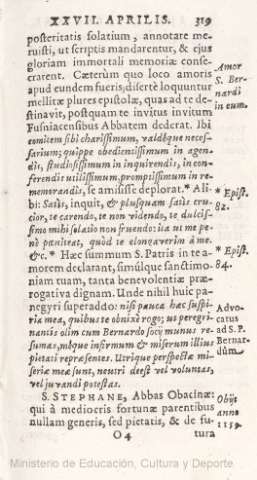 XXVII. APRILIS. 319
posteritatis solatium, annotare me-
ruisti, ut scriptis mandarentur, & ejus
gloriam immortali memoriæ conse-
crarent. Cæterùm quo loco amoris
apud eundem fueris, disertè loquuntur
mellitæ plures epistolæ, quas ad te de-
stinavit, postquam te invitus invitum
Fusniacensibus Abbatem dederat. Ibi
comitem sibi charissimum, valdéque neces-
sarium; quippe obedientissimum in agen-
dis, studiosissimum in inquirendis, in con-
ferendis utilissimum, promptissimum in re-
memorandis, se amisisse deplorat. * Ali-
bi: Satìs, inquit, & plusquam satìs cru-
cior, te carendo, te non videndo, te dulcis-
simo mihi solatio non fruendo: ita ut me pe-
nè pœniteat, quòd te elongaverim à me.
&c. * Hæc summum S. Patris in te a-
morem declarant, simúlque sanctimo-
niam tuam, tanta benevolentiæ præ-
rogativa dignam. Unde nihil huic pa-
negyri superaddo: nisi pauca hæc suspi-
ria mea, quibus te obnixè rogo; ut peregri-
nantis olim cum Bernardo socij munus re-
sumas, mèque infirmum & miserum illius
pietati repræsentes. Utrique perspectæ mi-
seriæ meæ sunt, neutri deest vel voluntas,
vel juvandi potestas.
S. STEPHANE, Abbas Obacinæ:
qui à mediocris fortunæ parentibus
nullam generis, sed pietatis, & de fu-
O 4 tura
Amor
S. Ber-
nardi
in eum.
* Epist.
82.
* Epist.
84.
Advo-
catus
ad S. P.
Bernar-
dum.
Obijt
anno
1159.
Ministerio de Educación, Cultura y Deporte